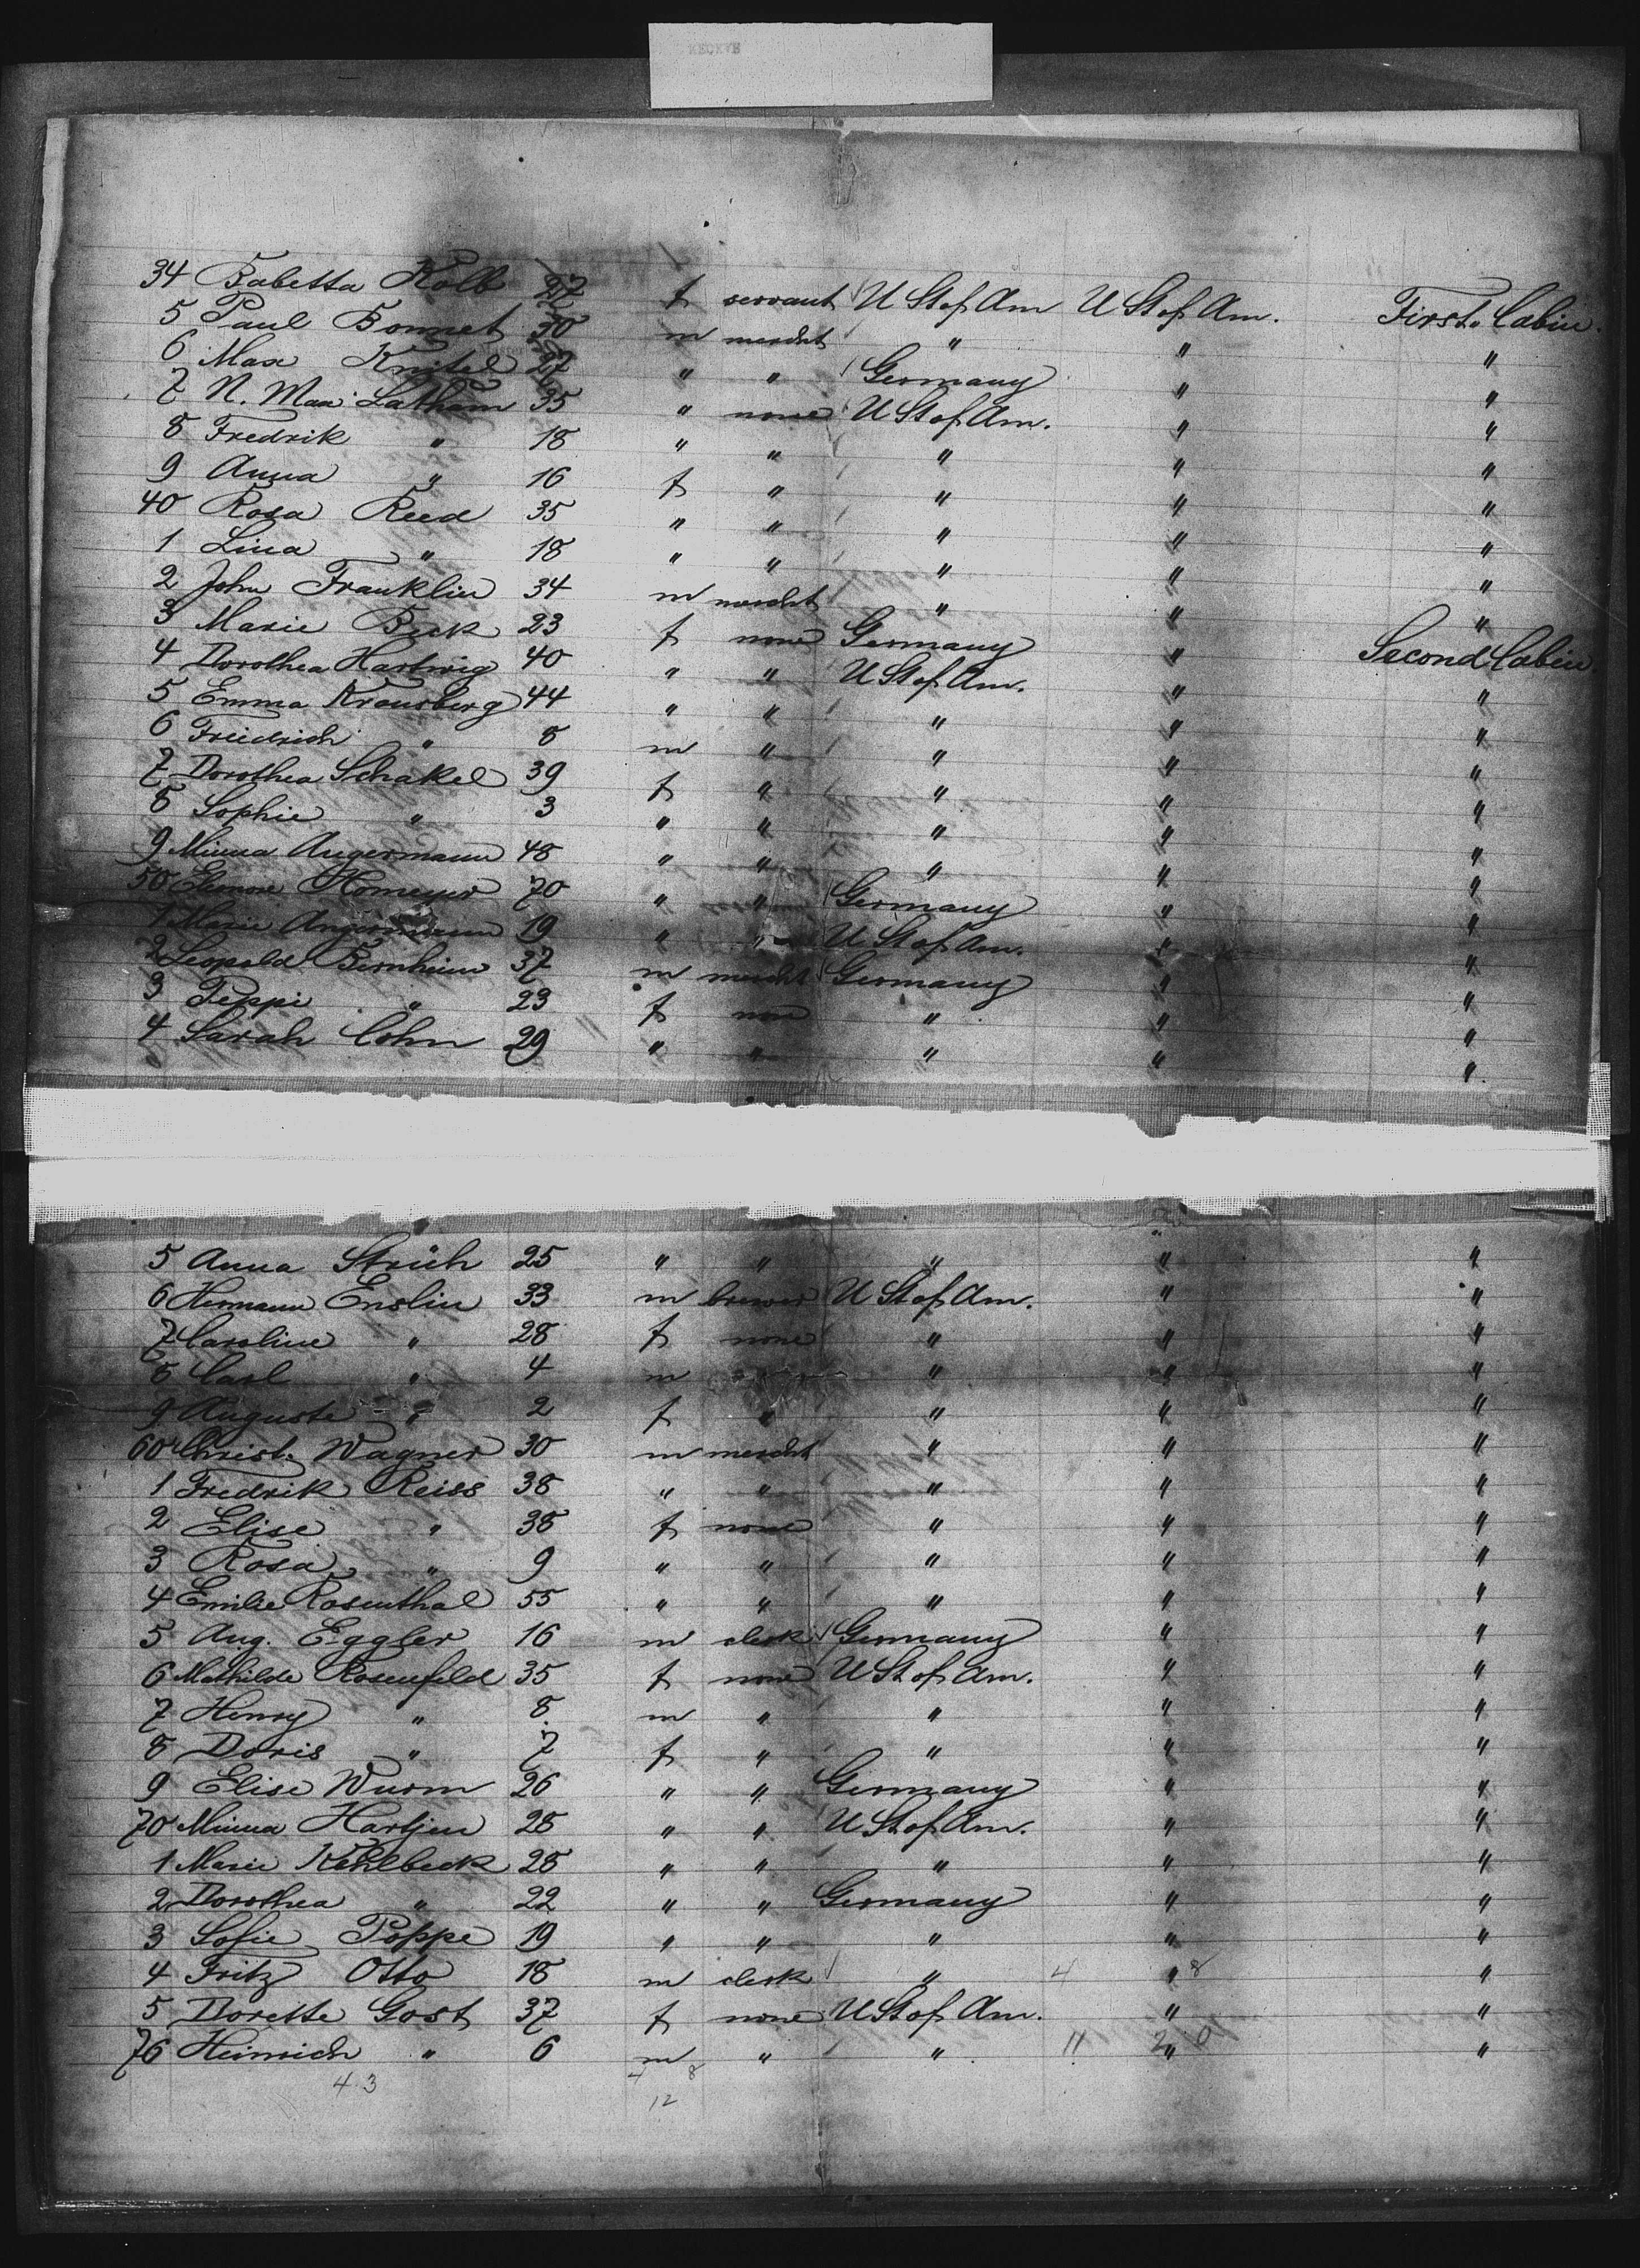 34 Babetta Kolb 27 f servant U St of Am U St of Am. First Cabin.
5 Paul Bonnet 30 m mercht " " "
6 Max Knitel 27 " " Germany " "
7 N. Max Latham 35 " none U St of Am. " "
8 Fredrik " 18 " " " " "
9 Anna " 16 f " " " "
40 Rosa Reed 35 " " " " "
1 Lina " 18 " " " " "
2 John Franklin 34 m mercht " " "
3 Marie Beck 23 f none Germany " Second Cabin.
4 Dorothea Hartwig 40 " " U St of Am. " "
5 Emma Kransberg 44 " " " " "
6 Freidrich " 8 m " " " "
7 Dorothea Schakel 39 f " " " "
8 Sophie " 3 " " " " "
9 Minna Angermann 48 " " " " "
50 Eleonore Homeyer 70 " " Germany " "
1 Marie Angermann 19 " " U St of Am. " "
2 Leopold Bernheim 37 m mercht Germany " "
3 Peppi " 23 f none " " "
4 Sarah Cohn 29 " " " " "
5 Anna Strüh 25 " " " " "
6 Hermann Enslin 33 m brewer U St of Am. " "
7 Caroline " 28 f none " " "
8 Carl " 4 m " " "
9 Auguste " 2 f " " " "
60 Christ. Wagner 30 m mercht " " "
1 Fredrik Reiss 38 " " " " "
2 Elise " 38 f none " " "
3 Rosa " 9 " " " " "
4 Emilie Rosenthal 55 " " " " "
5 Aug. Eggler 16 m clerk Germany " "
6 Mathilde Rosenfeld 35 f none U St of Am. " "
7 Henry " 8 m " " " "
8 Doris " 7 f " " " "
9 Elise Wurm 26 " " Germany " "
70 Minna Hartjen 28 " " U St of Am. " "
1 Marie Kehlbeck 28 " " " " "
2 Dorothea " 22 " " Germany " "
3 Sofie Poppe 19 " " " " "
4 Fritz Otto 18 m clerk " 4 " 8 "
5 Dorette Gost 37 f none U St of Am. " "
76 Heinrich " 6 m " " 11 " 20 "
43 4 8
12